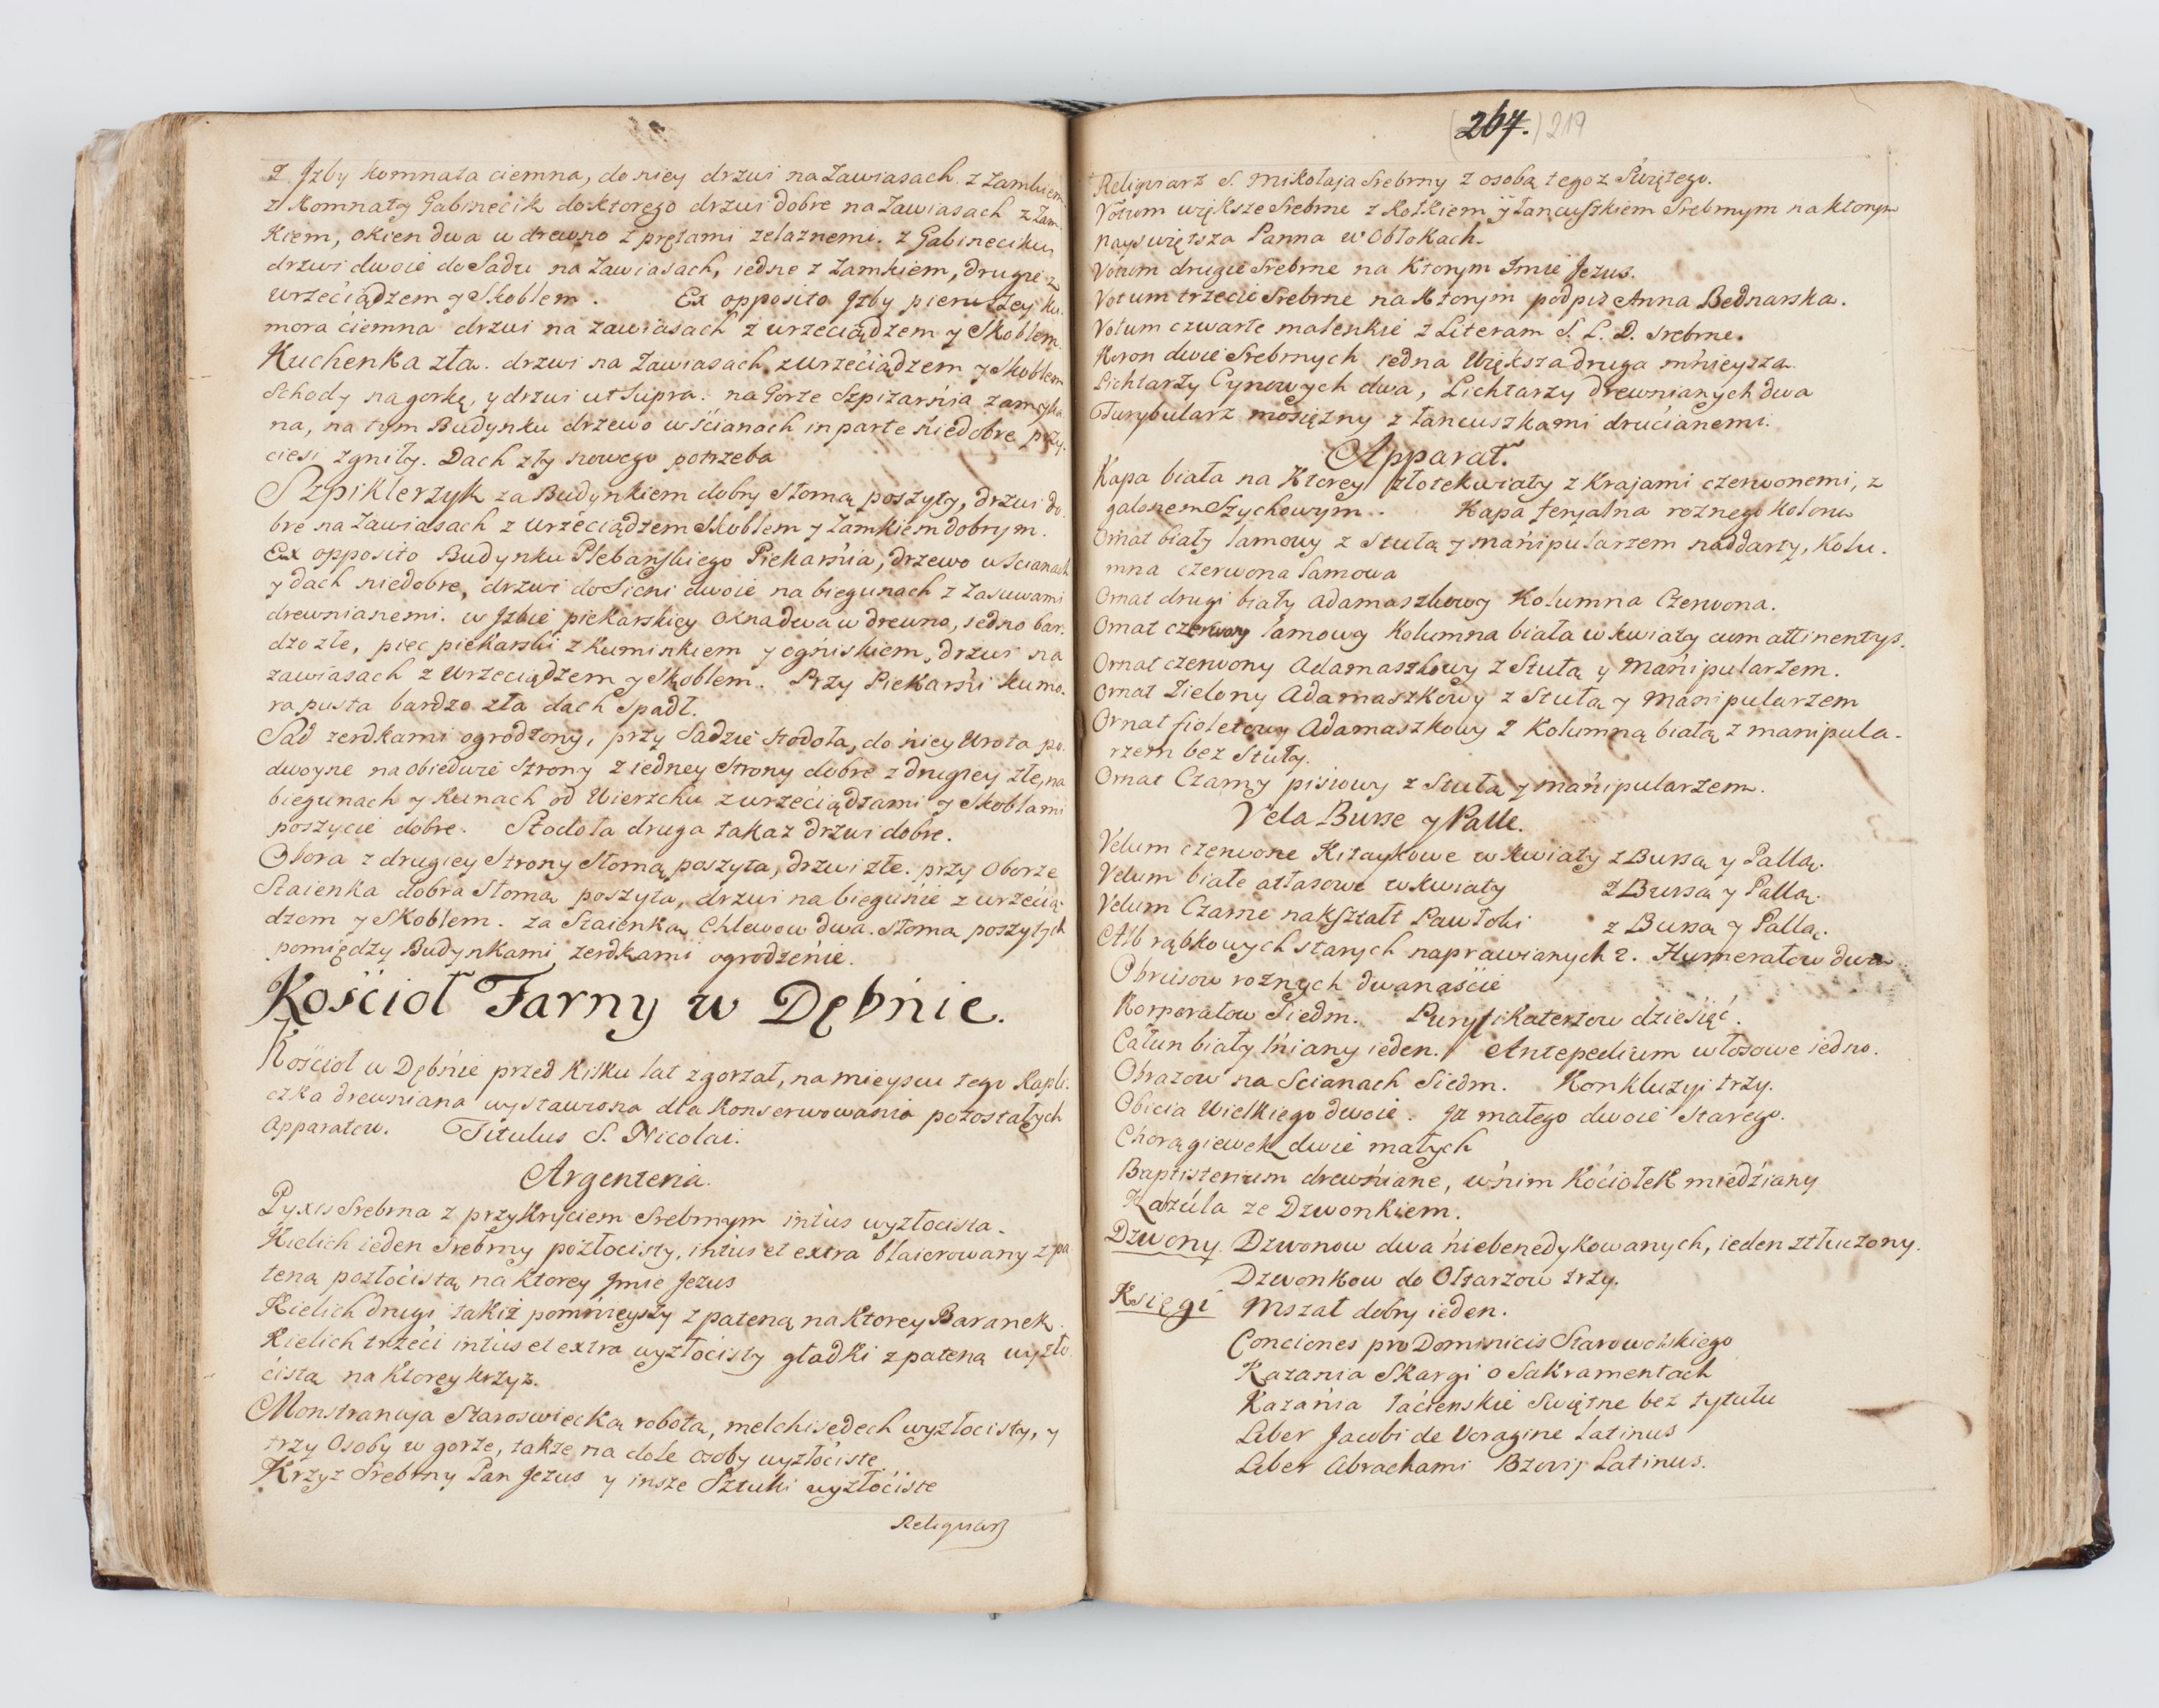 z Jzby komnata ciemna, do niey drzwi na Zawiasach z Zamkiem
z Komnaty Gabinecik do ktorego drzwi dobre na Zawiasach z Zam-
kiem, okien dwa w drewno z prętami zelaznemi. z Gabineciku
drzwi dwoie do Sadu na Zawiasach, iedne z Zamkiem, drugie z
wrzeciądzem y Skoblem. Ex opposito Jzby pierwszey ku-
mora ciemna drzwi na zawiasach z wrzeciądzem y Skoblem.
Kuchenka zła. drzwi na Zawiasach z wrzeciądzem y Skoblem
Schody na gorkę, y drzwi ut Supra. na Gorze Szpizarnia zamyka-
na, na tym Budynku drzewo w ścianach in parte niedobre przy-
ciesi zgniły. Dach zły nowego potrzeba
Szpiklerzyk za Budynkiem dobry Słomą poszyty, drzwi do-
bre na Zawiasach z wrzeciądzem Skoblem y Zamkiem dobrym.
Ex opposito Budynku Plebanskiego Piekarnia, drzewo w ścianach
y dach niedobre, drzwi do Sieni dwoie na biegunach z Zasuwami
drewnianemi. w Jzbie piekarskiey okna dwa w drewno, iedno bar-
dzo złe, piec piekarski z kuminkiem y ogniskiem, drzwi na
zawiasach z wrzeciądzem y Skoblem. Przy Piekarni kumo-
ra pusta bardzo zła dach Spadł.
Sad zerdkami ogrodzony, przy Sadzie stodoła, do niey Wrota po-
dwoyne na obiedwie Strony z iedney Strony dobre z drugiey złe, na
biegunach y kunach od Wierzchu z wrzeciądzami y Skoblami
poszycie dobre. Stodoła druga takaz drzwi dobre.
Obora z drugiey Strony Słomą poszyta, drzwi złe. przy Oborze
Staienka dobra Słomą poszyta, drzwi na biegunie z wrzecią-
dzem y Skoblem. za Staienką Chlewow dwa. Słomą poszytych
pomiędzy Budynkami zerdkami ogrodzenie.
Kościoł Farny w Dębnie.
Kościoł w Dębnie przed kilku lat zgorzał, na mieyscu tego Kapli-
czka drewniana wystawiona dla konserwowania pozostałych
Apparatow. Titulus S. Nicolai.
Argenteria.
Pyxis Srebrna z przykryciem Srebrnym intus wyzłocista.
Kielich ieden Srebrny pozłocisty, intus et extra blaierowany z pa-
teną pozłocistą na ktorey Jmie Jezus
Kielich drugi takiż pomnieyszy z pateną na ktorey Baranek.
Kielich trzeci intus et extra wyzłocisty gładki z pateną wyzło-
cistą na ktorey krzyz.
Monstrancya Staroswiecką robotą, melchisedech wyzłocisty, y
trzy Osoby w gorze, także na dole osoby wyzłociste
Krzyz Srebrny Pan Jezus y insze Sztuki wyzłociste
Religwiarz
267. 219
Religwiarz S. Mikołaja Srebrny z osobą tegoz Swiętego.
Votum większe Srebrne z kołkiem y łancuszkiem Srebrnym na ktorym
Nayswiętsza Panna w Obłokach.
Votum drugie Srebrne na ktorym Jmie Jezus.
Votum trzecie Srebrne na ktorym podpis Anna Bednarska.
Votum czwarte malenkie z Literam S. L. D. srebrne.
Koron dwie Srebrnych iedna Większa druga mnieysza.
Lichtarzy Cynowych dwa, Lichtarzy drewnianych dwa
Turybularz mosiężny z łancuszkami drucianemi.
Apparat.
Kapa biała na ktorey złote kwiaty z krajami czerwonemi, z
galonem Szychowym. Kapa feryalna roznego koloru
Ornat biały lamowy z Stułą y manipularzem naddarty, kolu-
mna czerwona lamowa
Ornat drugi biały Adamaszkowy Kolumna Czerwona.
Ornat czerwony lamowy Kolumna biała w kwiaty cum attinentys.
Ornat czerwony Adamaszkowy z Stułą y Manipularzem.
Ornat Zielony Adamaszkowy z Stułą y Manipularzem
Ornat fioletowy Adamaszkowy z Kolumną białą z manipula-
rzem bez Stuły.
Ornat Czarny pisiowy z Stułą y manipularzem.
Vela Burse y Palle.
Velum czerwone Kitaykowe w kwiaty z Bursą y Pallą.
Velum białe atłasowe w kwiaty z Bursą y Pallą.
Velum Czarne nakształt Pawłoki z Bursą y Pallą.
Alb rąbkowych starych naprawianych 2. Humerałow dwa
Obrusow roznych dwanaście
Korporałow Siedm. Puryfikaterzow dziesięć.
Całun biały lniany ieden. Antepedium włosowe iedno.
Obrazow na Scianach Siedm. Konkluzyi trzy.
Obicia Wielkiego dwoie. Jż małego dwoie starego.
Chorągiewek dwie małych
Baptisterium drewniane, w nim Kociołek miedziany
Kazula ze Dzwonkiem.
Dzwony. Dzwonow dwa niebenedykowanych, ieden ztłuczony.
Dzwonkow do Ołtarzow trzy.
Księgi Mszał dobry ieden.
Conciones pro Dominicis Starowolskiego
Kazania Skargi o Sakramentach
Kazania łacienskie Swiętne bez tytułu
Liber Jacobi de Voragine Latinus
Liber Abrachami Bzovij Latinus.